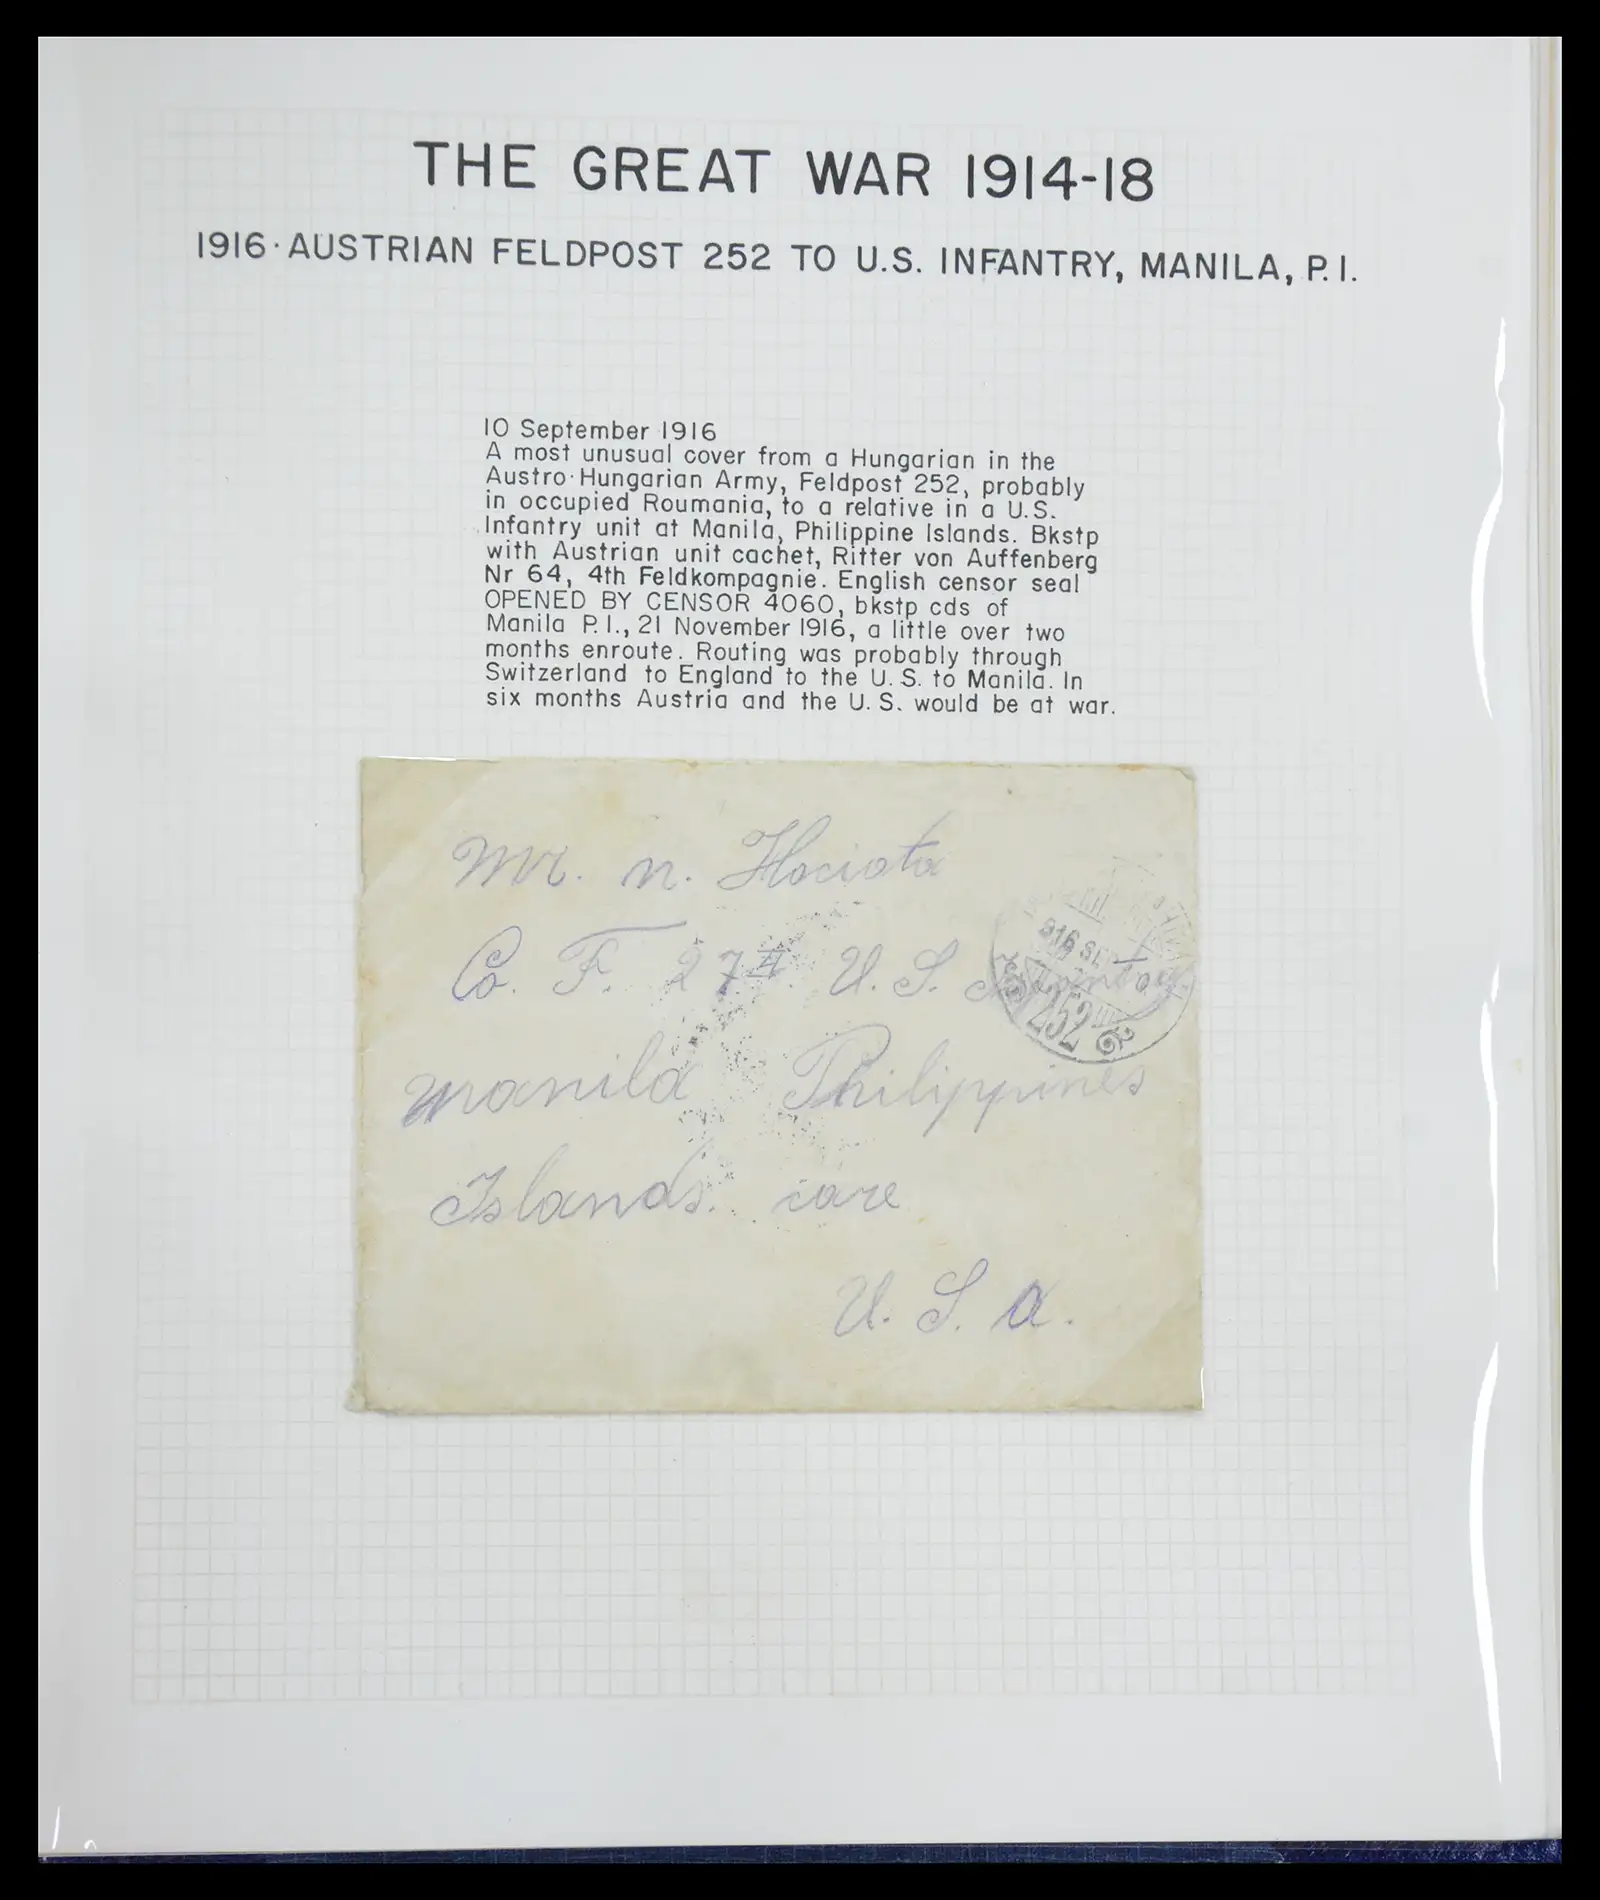 THE GREAT WAR 1914-18
1916·AUSTRIAN FELDPOST 252 TO U.S. INFANTRY, MANILA, P.I.
10 September 1916
A most unusual cover from a Hungarian in the
Austro·Hungarian Army, Feldpost 252, probably
in occupied Roumania, to a relative in a U.S.
Infantry unit at Manila, Philippine Islands. Bkstp
with Austrian unit cachet, Ritter von Auffenberg
Nr 64, 4th Feldkompagnie. English censor seal
OPENED BY CENSOR 4060, bkstp cds of
Manila P.I., 21 November 1916, a little over two
months enroute. Routing was probably through
Switzerland to England to the U.S. to Manila. In
six months Austria and the U.S. would be at war.
Mr. n. Hociota
Co. F. 27th U. S.
916
252
manila Philippines
Islands. care
U. S. a.